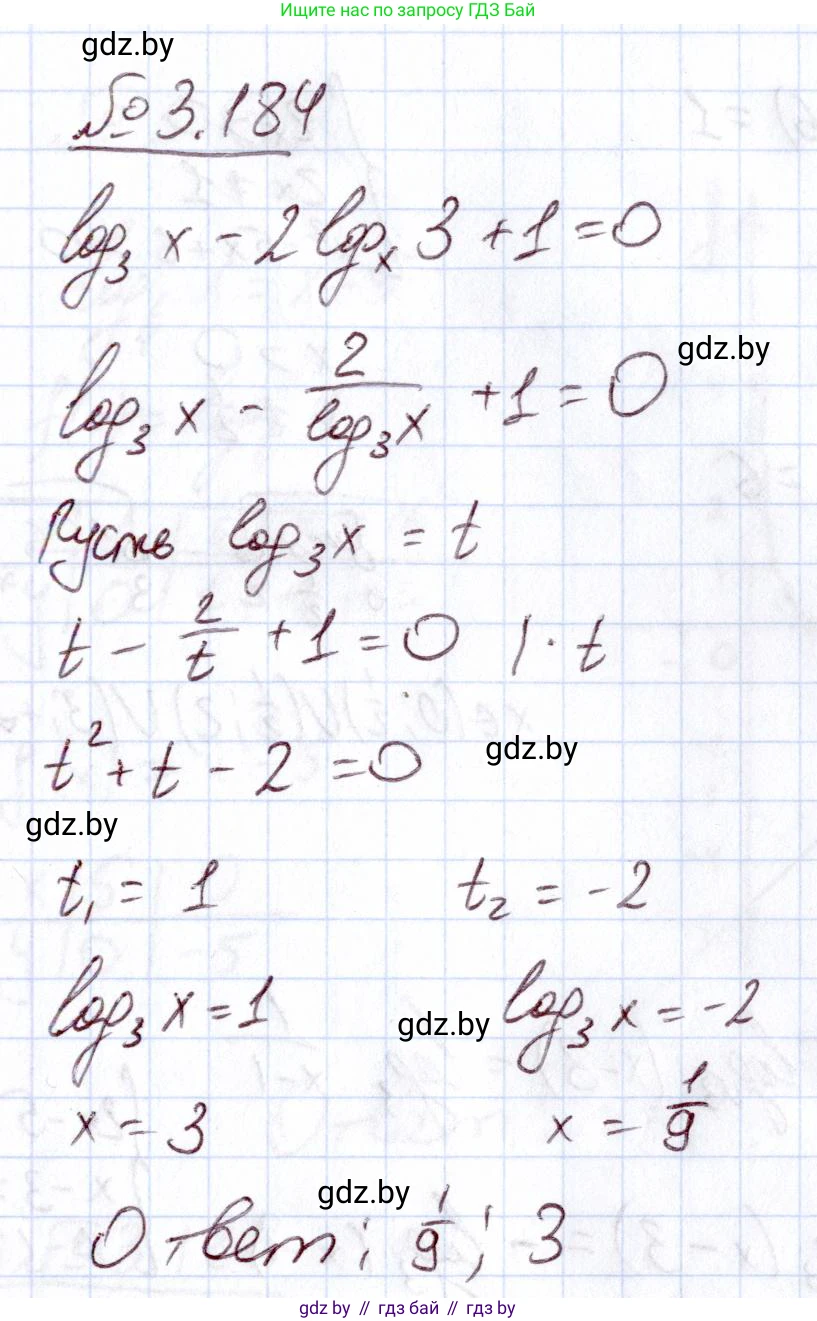 Ищите нас по запросу ГДЗ Бай
gdz.by
№ 3.184
log₃ x - 2 logₓ 3 + 1 = 0
gdz.by
log₃ x - 2/log₃ x + 1 = 0
Пусть log₃ x = t
t - 2/t + 1 = 0 | · t
t² + t - 2 = 0
gdz.by
gdz.by
t₁ = 1 t₂ = -2
log₃ x = 1 gdz.by log₃ x = -2
x = 3 x = 1/9
gdz.by
Ответ: 1/9; 3
gdz.by // гдз бай // gdz.by